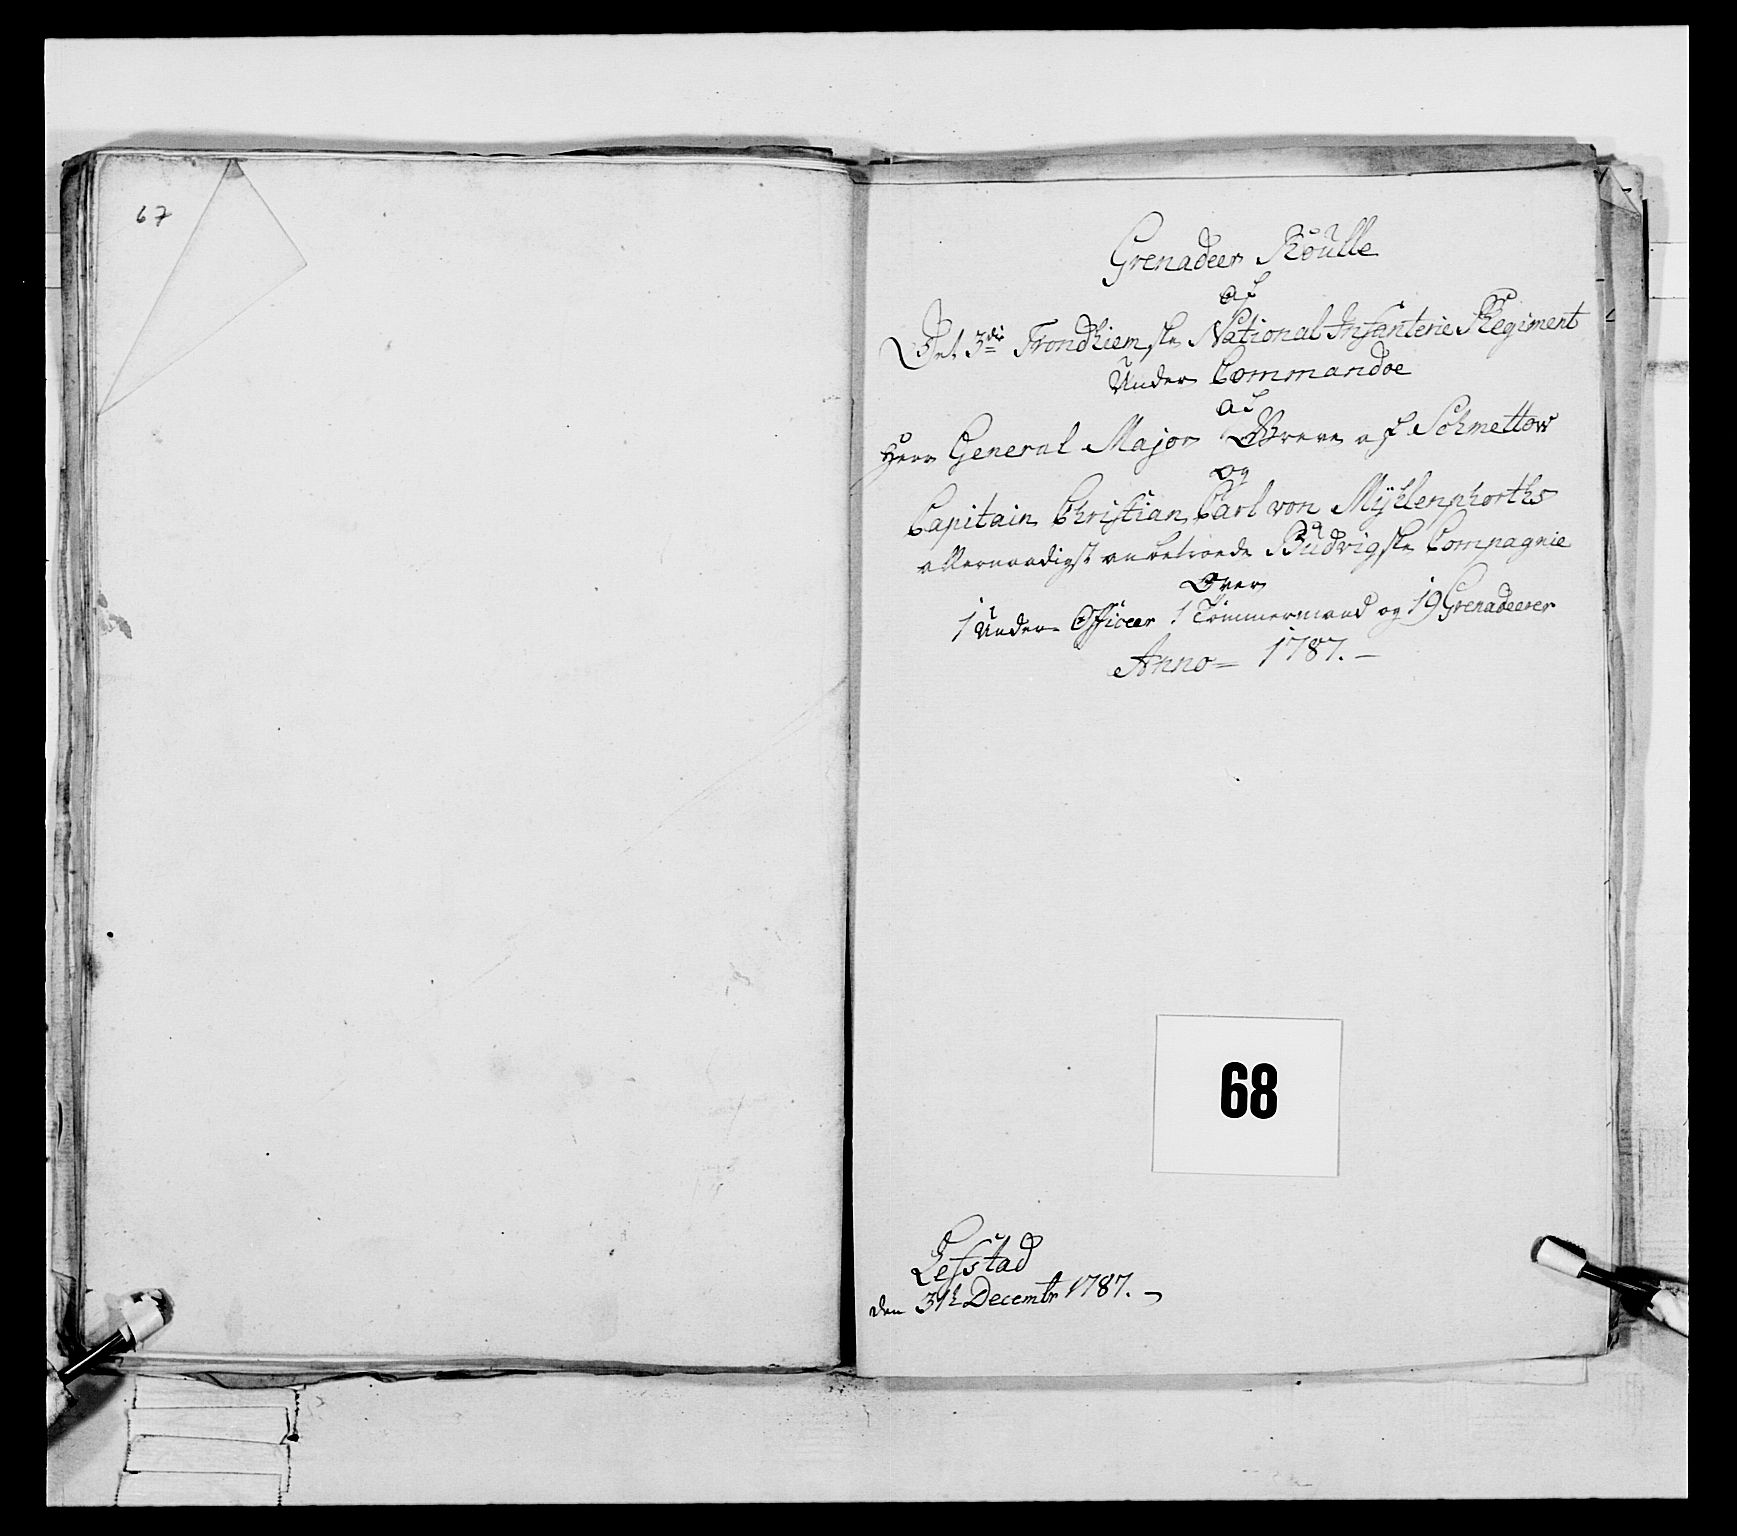 67
Grenadeer Roulle
af
Det 3die Trondhiemske National Infanterie Regiment
Under Commandoe
af
Herr General Major Greve af Schmettow
og
Capitain Christian Carl von Mÿhlenphorths
allernaadigst anbetroede Budvigske Compagnie
Over
1 Under Officeer 1 Tømmermand og 19 Grenadeerer
Anno 1787.
68
Lefstad
den 31t Decembr 1787.